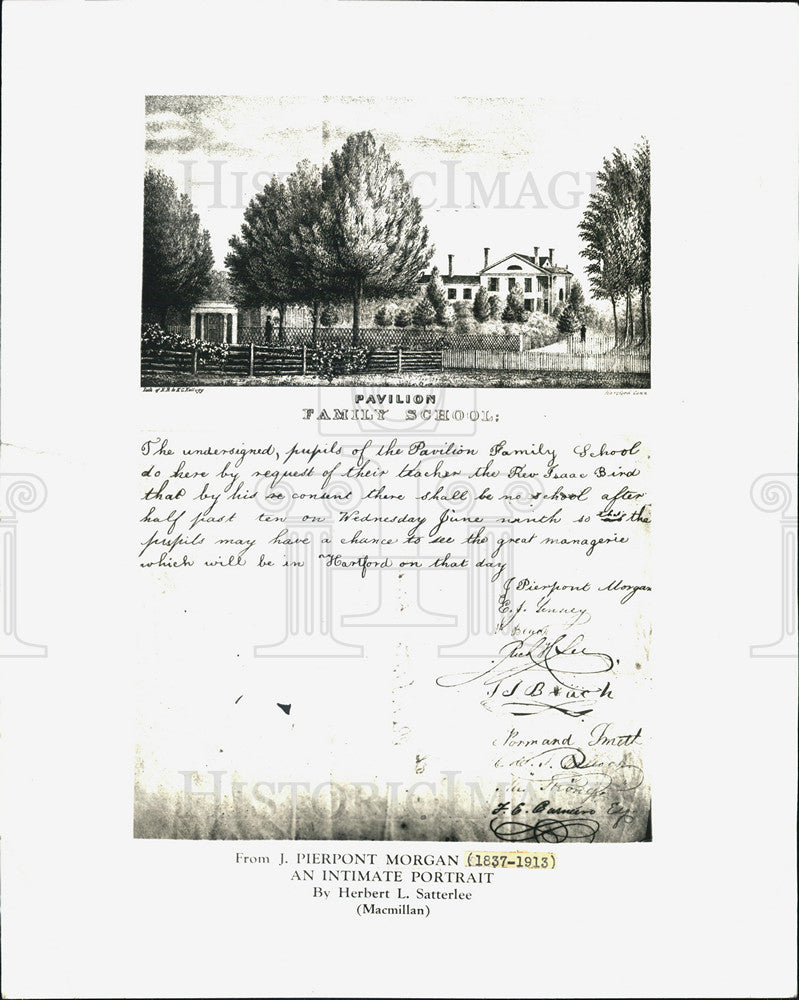 HISTORIC IMAGES
Lith. of E.B. & E.C. Kellogg
Hartford Conn.
PAVILION
FAMILY SCHOOL;
The undersigned, pupils of the Pavilion Family School
do here by request of their teacher the Rev Isaac Bird
that by his re consent there shall be no school after
half past ten on Wednesday June ninth so the
pupils may have a chance to see the great managerie
which will be in Hartford on that day
J Pierpont Morgan
E. J.
Rich H Lee
Beach
Normand Smith
F. E.
HISTORIC IMAGES
From J. PIERPONT MORGAN (1837-1913)
AN INTIMATE PORTRAIT
By Herbert L. Satterlee
(Macmillan)